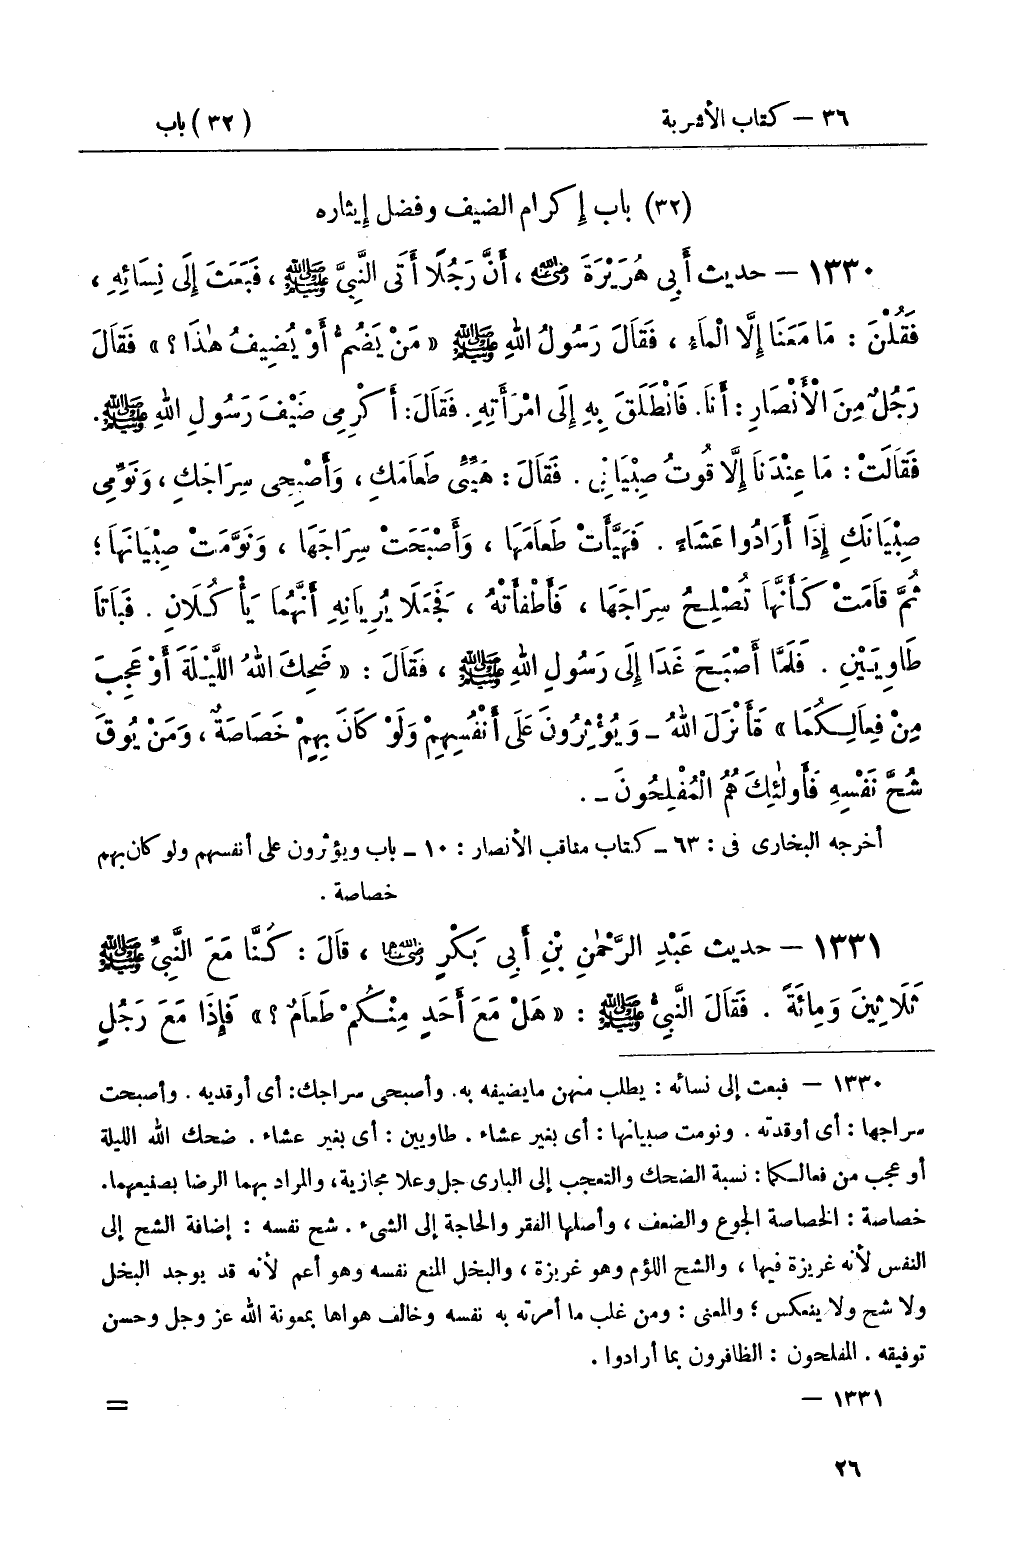 ٣٦ – كتاب الأشربة
(٣٢) باب
(٣٢) باب إكرام الضيف وفضل إيثاره
١٣٣٠ – حديث أَبِي هُرَيْرَةَ رضي الله عنه ، أَنَّ رَجُلًا أَتَى النَّبِيَّ ﷺ ، فَبَعَثَ إِلَى نِسَائِهِ ،
فَقُلْنَ : مَا مَعَنَا إِلَّا الْمَاءِ ، فَقَالَ رَسُولُ اللهِ ﷺ « مَنْ يَضُمُّ أَوْ يُضِيفُ هٰذَا ؟ » فَقَالَ
رَجُلٌ مِنَ الْأَنْصَارِ : أَنَا. فَانْطَلَقَ بِهِ إِلَى امْرَأَتِهِ. فَقَالَ: أَكْرِمِي ضَيْفَ رَسُولِ اللهِ ﷺ.
فَقَالَتْ : مَا عِنْدَنَا إِلَّا قُوتُ صِبْيَانِي . فَقَالَ : هَيِّئِي طَعَامَكِ ، وَأَصْبِحِي سِرَاجَكِ ، وَنَوِّمِي
صِبْيَانَكِ إِذَا أَرَادُوا عَشَاءً . فَهَيَّأَتْ طَعَامَهَا ، وَأَصْبَحَتْ سِرَاجَهَا ، وَنَوَّمَتْ صِبْيَانَهَا ؛
ثُمَّ قَامَتْ كَأَنَّهَا تُصْلِحُ سِرَاجَهَا ، فَأَطْفَأَتْهُ ، فَجَعَلَا يُرِيَانِهِ أَنَّهُمَا يَأْكُلَانِ . فَبَاتَا
طَاوِيَيْنِ . فَلَمَّا أَصْبَحَ غَدَا إِلَى رَسُولِ اللهِ ﷺ ، فَقَالَ : « ضَحِكَ اللهُ اللَّيْلَةَ أَوْ عَجِبَ
مِنْ فِعَالِكُمَا » فَأَنْزَلَ اللهُ ــ وَيُؤْثِرُونَ عَلَى أَنْفُسِهِمْ وَلَوْ كَانَ بِهِمْ خَصَاصَةٌ ، وَمَنْ يُوقَ
شُحَّ نَفْسِهِ فَأُولٰئِكَ هُمُ الْمُفْلِحُونَ ــ .
أخرجه البخارى فى : ٦٣ ــ كتاب مناقب الأنصار : ١٠ ــ باب ويؤثرون على أنفسهم ولو كان بهم
خصاصة .
١٣٣١ – حديث عَبْدِ الرَّحْمٰنِ بْنِ أَبِي بَكْرٍ رضي الله عنهما ، قَالَ : كُنَّا مَعَ النَّبِيِّ ﷺ
ثَلَاثِينَ وَمِائَةً . فَقَالَ النَّبِيُّ ﷺ : « هَلْ مَعَ أَحَدٍ مِنْكُمْ طَعَامٌ ؟ » فَإِذَا مَعَ رَجُلٍ
١٣٣٠ – فبعث إلى نسائه : يطلب منهن مايضيفه به. وأصبحى سراجك: أى أوقديه . وأصبحت
سراجها : أى أوقدته . ونومت صبيانها : أى بغير عشاء . طاويين : أى بغير عشاء . ضحك الله الليلة
أو عجب من فعالكما : نسبة الضحك والتعجب إلى البارى جل وعلا مجازية، والمراد بهما الرضا بصنيعهما.
خصاصة : الخصاصة الجوع والضعف ، وأصلها الفقر والحاجة إلى الشىء . شح نفسه : إضافة الشح إلى
النفس لأنه غريزة فيها ، والشح اللؤم وهو غريزة ، والبخل المنع نفسه وهو أعم لأنه قد يوجد البخل
ولا شح ولا ينعكس ؛ والمعنى : ومن غلب ما أمرته به نفسه وخالف هواها بمعونة الله عز وجل وحسن
توفيقه . المفلحون : الظافرون بما أرادوا .
١٣٣١ –
=
٢٦